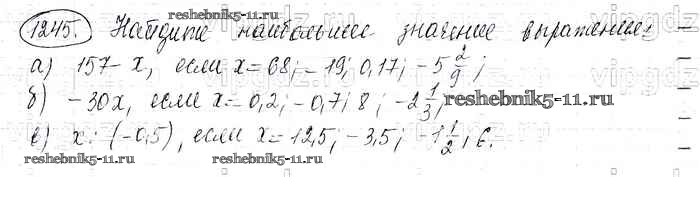 1245. Найдите наибольшее значение выражения:
а) 157 - x, если x = 68; - 19; 0,17; -5 2/9;
б) -30x, если x = 0,2; -0,7; 8; -2 1/3;
в) x : (-0,5), если x = 12,5; -3,5; -1 1/2; 6.
reshebnik5-11.ru
reshebnik5-11.ru
reshebnik5-11.ru
reshebnik5-11.ru
reshebnik5-11.ru